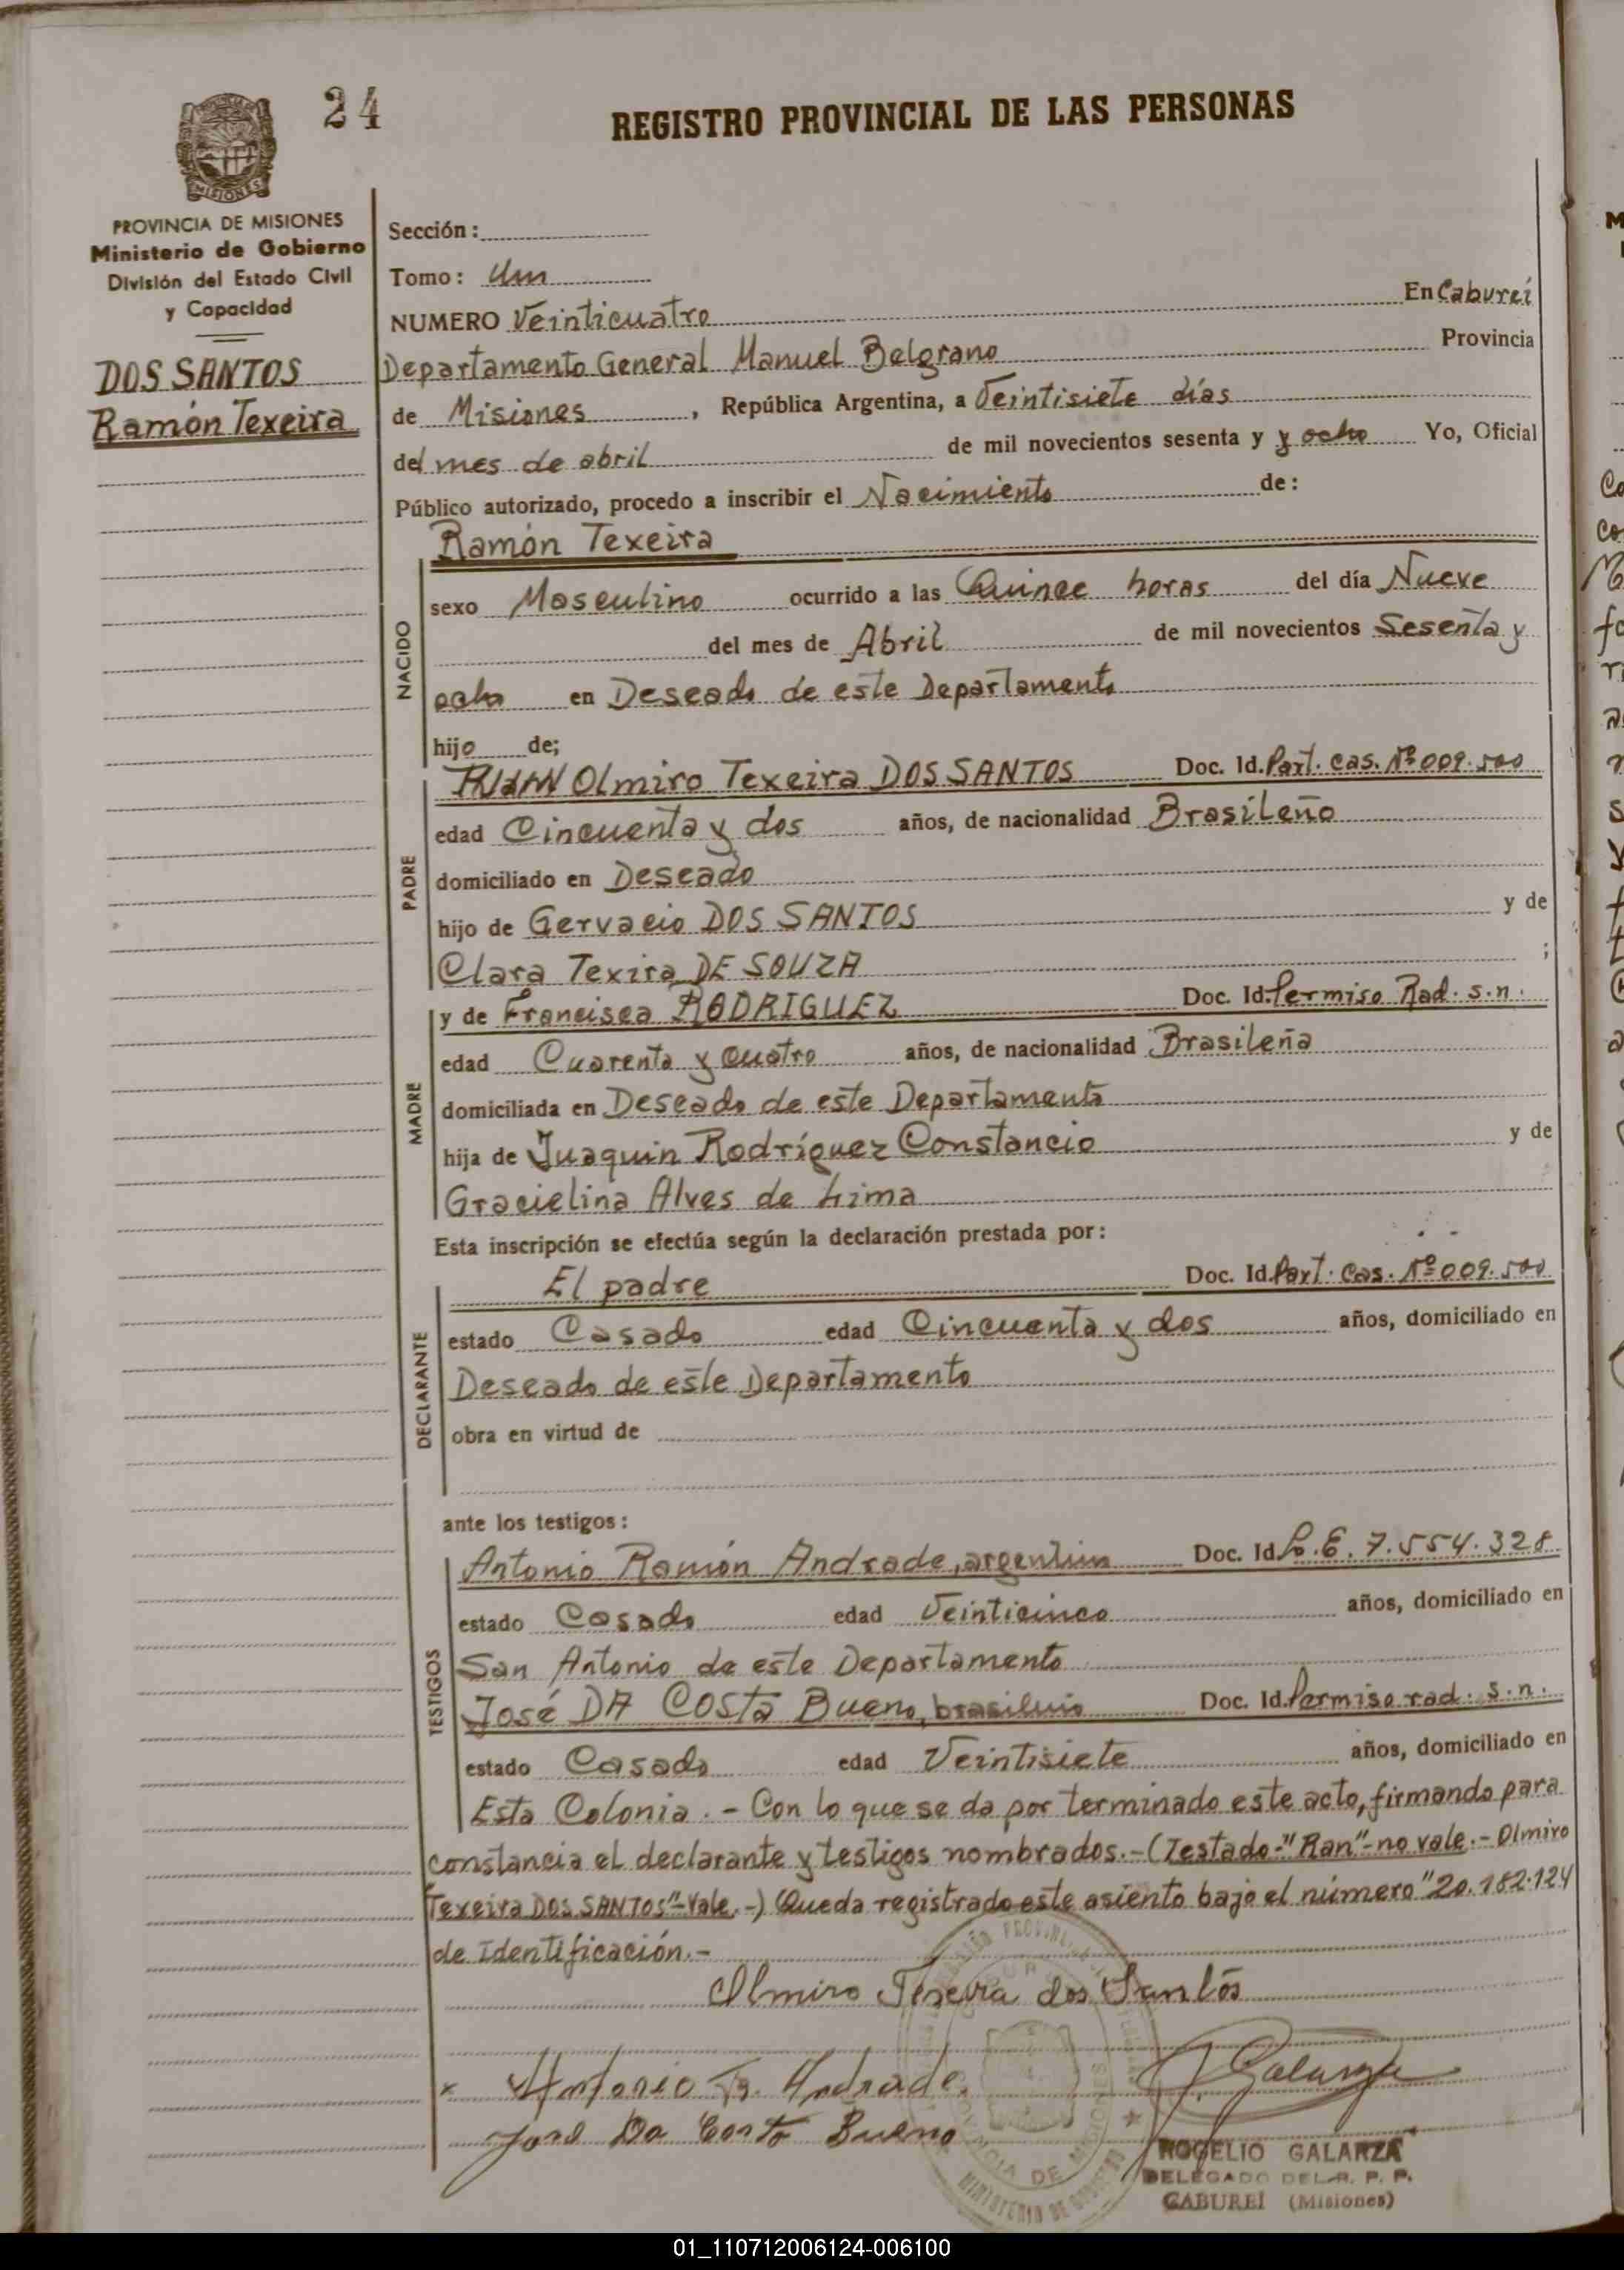 24
REGISTRO PROVINCIAL DE LAS PERSONAS
MISIONES
PROVINCIA DE MISIONES
Ministerio de Gobierno
División del Estado Civil
y Capacidad
DOS SANTOS
Ramón Texeira
Sección:
Tomo: Um
NUMERO Veinticuatro En Cabureí
Departamento General Manuel Belgrano Provincia
de Misiones, República Argentina, a Veintisiete días
del mes de abril de mil novecientos sesenta y y ocho Yo, Oficial
Público autorizado, procedo a inscribir el Nacimiento de:
Ramón Texeira
NACIDO
sexo Masculino ocurrido a las Quince horas del día Nueve
del mes de Abril de mil novecientos Sesenta y
ocho en Deseado de este Departamento
hijo de;
PADRE
Olmiro Texeira DOS SANTOS Doc. Id. Part. cas. Nº 009.500
edad Cincuenta y dos años, de nacionalidad Brasileño
domiciliado en Deseado
hijo de Gervacio DOS SANTOS y de
Clara Texira DE SOUZA ;
MADRE
y de Francisca RODRIGUEZ Doc. Id. Permiso Rad. s.n.
edad Cuarenta y cuatro años, de nacionalidad Brasileña
domiciliada en Deseado de este Departamento
hija de Juaquin Rodríguez Constancio y de
Gracielina Alves de Lima
Esta inscripción se efectúa según la declaración prestada por:
DECLARANTE
El padre Doc. Id. Part. Cas. Nº 009.500
estado Casado edad Cincuenta y dos años, domiciliado en
Deseado de este Departamento
obra en virtud de
ante los testigos:
TESTIGOS
Antonio Ramón Andrade, argentino Doc. Id. L.E. 7.554.328
estado Casado edad Veinticinco años, domiciliado en
San Antonio de este Departamento
José DA COSTA Bueno, brasileño Doc. Id. Permiso rad. s.n.
estado Casado edad Veintisiete años, domiciliado en
Esta Colonia.- Con lo que se da por terminado este acto, firmando para
constancia el declarante y testigos nombrados.- (Testado-"Ran"-no vale.- Olmiro
Texeira DOS SANTOS"-Vale.-) Queda registrado este asiento bajo el número "20.182.124
de Identificación.-
Olmiro Texeira dos Santos
Antonio R. Andrade
José Da Costa Bueno
R. Galarza
ROGELIO GALARZA
DELEGADO DEL R. P. P.
CABUREÍ (Misiones)
PROVINCIA DE MISIONES
MINISTERIO DE GOBIERNO
01_110712006124-006100